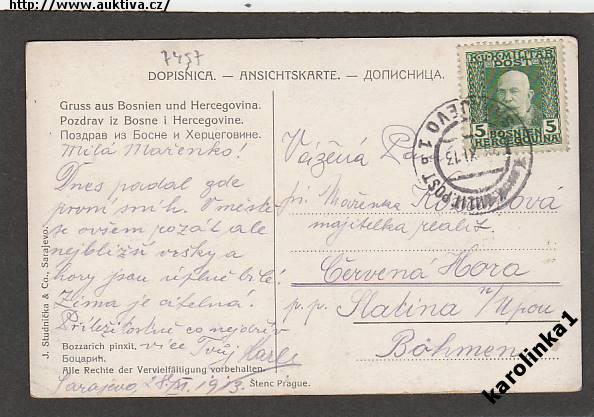 http://www.auktiva.cz/
7457
DOPISNICA. — ANSICHTSKARTE. — ДОПИСНИЦА.
K.u.K. MILITÄR
POST
5 BOSNIEN 5
HERCEGOVINA
SARAJEVO 1
XI.13
K.u.K. MILIT. POST
Gruss aus Bosnien und Hercegovina.
Pozdrav iz Bosne i Hercegovine.
Поздрав из Босне и Херцеговине.
Milá Mařenko!
Dnes padal zde
první sníh. V městě
se ovšem ale
nejbližší vršky a
hory jsou úplně bílé.
Zima je citelná.
Příležitostně co nejdřív
více Tvůj Karel
Sarajevo, 28/XI. 1913.
Vážená Paní
Mařenka
majitelka realit
Červená Hora
p. p. Slatina n/Úpou
Böhmen
J. Studnička & Co., Sarajevo.
Bozzarich pinxit.
Боцарић.
Alle Rechte der Vervielfältigung vorbehalten.
Štenc Prague.
karolinka1